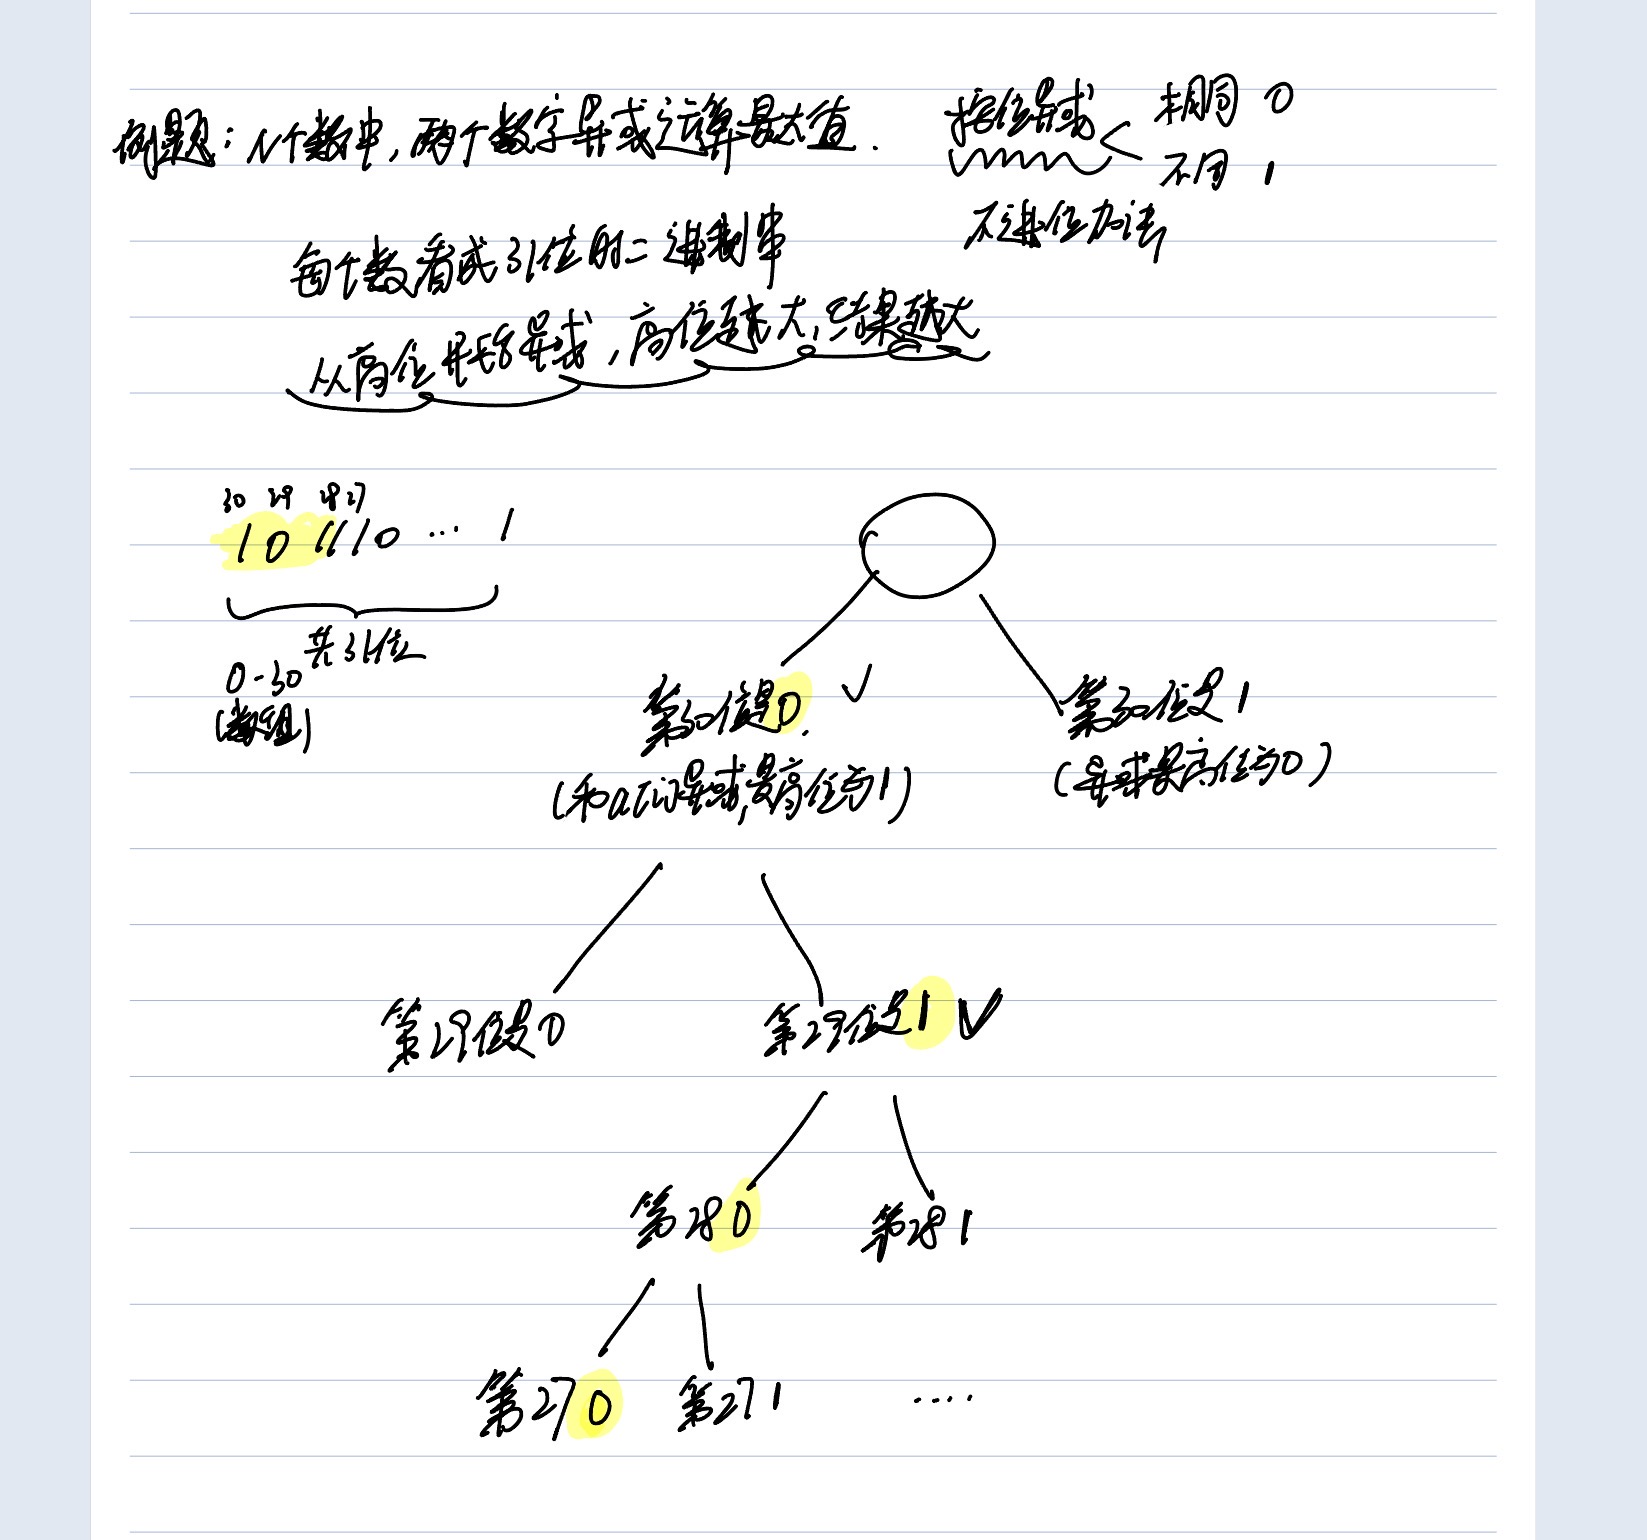 例题：N个数中，两个数字异或运算最大值．
按位异或 < 相同 0
不同 1
不进位加法
每个数看成31位的二进制串
从高位开始异或，高位越大，结果越大
30 29 28 27
1 0 1 1 1 0 … 1
共31位
0-30
(数组)
第30位是0. ✓
第30位是1
(和a[i]异或,最高位为1)
(异或最高位为0)
第29位是0
第29位是1 ✓
第28 0
第28 1
第27 0
第27 1
....